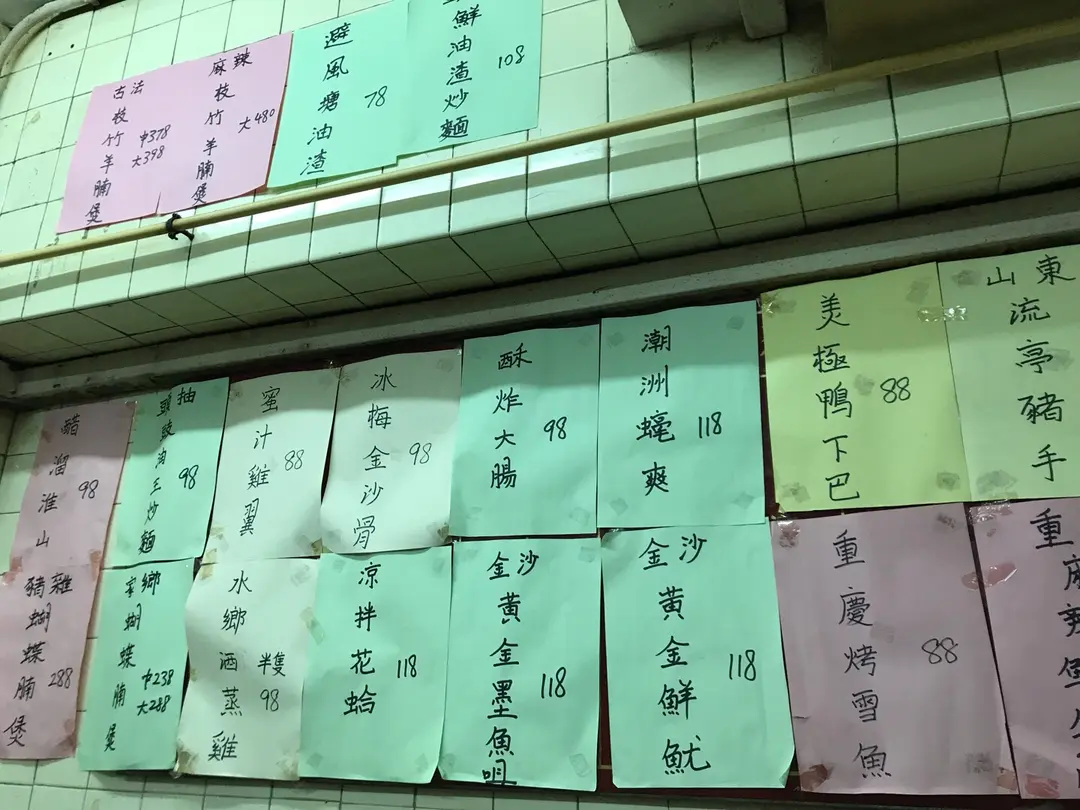 古法枝竹羊腩煲
中378
大398
麻辣枝竹羊腩煲
大480
避風塘油渣
78
鮮油渣炒麵
108
醋溜淮山
98
頭抽豉油王炒麵
98
蜜汁雞翼
88
冰梅金沙骨
98
酥炸大腸
98
潮洲蠔爽
118
美極鴨下巴
88
山東流亭豬手
豬雜蝴蝶腩煲
288
家鄉蝴蝶腩煲
中238
大288
水鄉洒蒸雞
半隻
98
涼拌花蛤
118
金沙黃金墨魚咀
118
金沙黃金鮮魷
118
重慶烤雪魚
88
重
麻辣